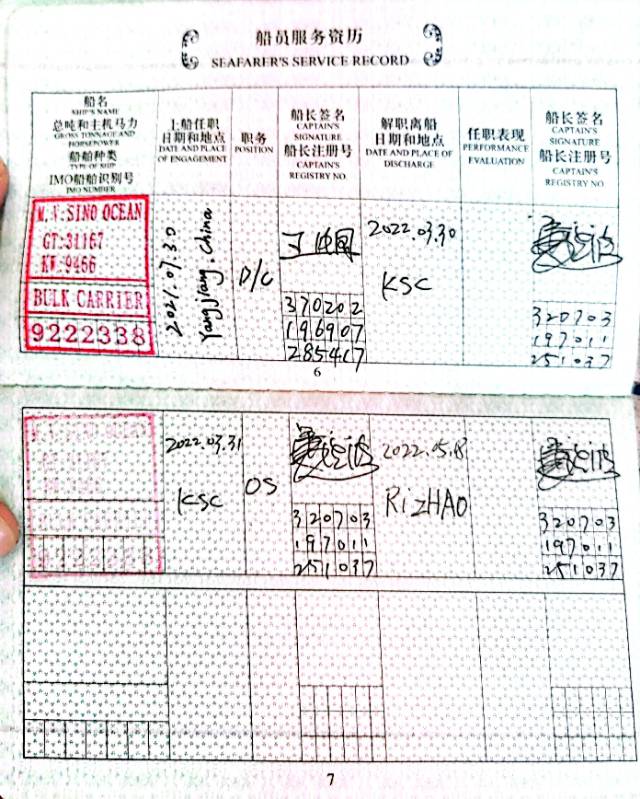 船员服务资历
SEAFARER'S SERVICE RECORD
船名
SHIP'S NAME
总吨和主机马力
GROSS TONNAGE AND
HORSEPOWER
船舶种类
TYPE OF SHIP
IMO船舶识别号
IMO NUMBER
上船任职
日期和地点
DATE AND PLACE
OF ENGAGEMENT
职务
POSITION
船长签名
CAPTAIN'S
SIGNATURE
船长注册号
CAPTAIN'S
REGISTRY NO.
解职离船
日期和地点
DATE AND PLACE OF
DISCHARGE
任职表现
PERFORMANCE
EVALUATION
船长签名
CAPTAIN'S
SIGNATURE
船长注册号
CAPTAIN'S
REGISTRY NO.
M.V:SINO OCEAN
GT:31167
KW:9466
BULK CARRIER
9222338
2021.07.30
Yangjiang.China
D/C
370202
196907
285417
2022.03.30
KSC
320703
197011
251037
6
2022.03.31
KSC
OS
320703
197011
251037
2022.05.18
RiZHAO
320703
197011
251037
7